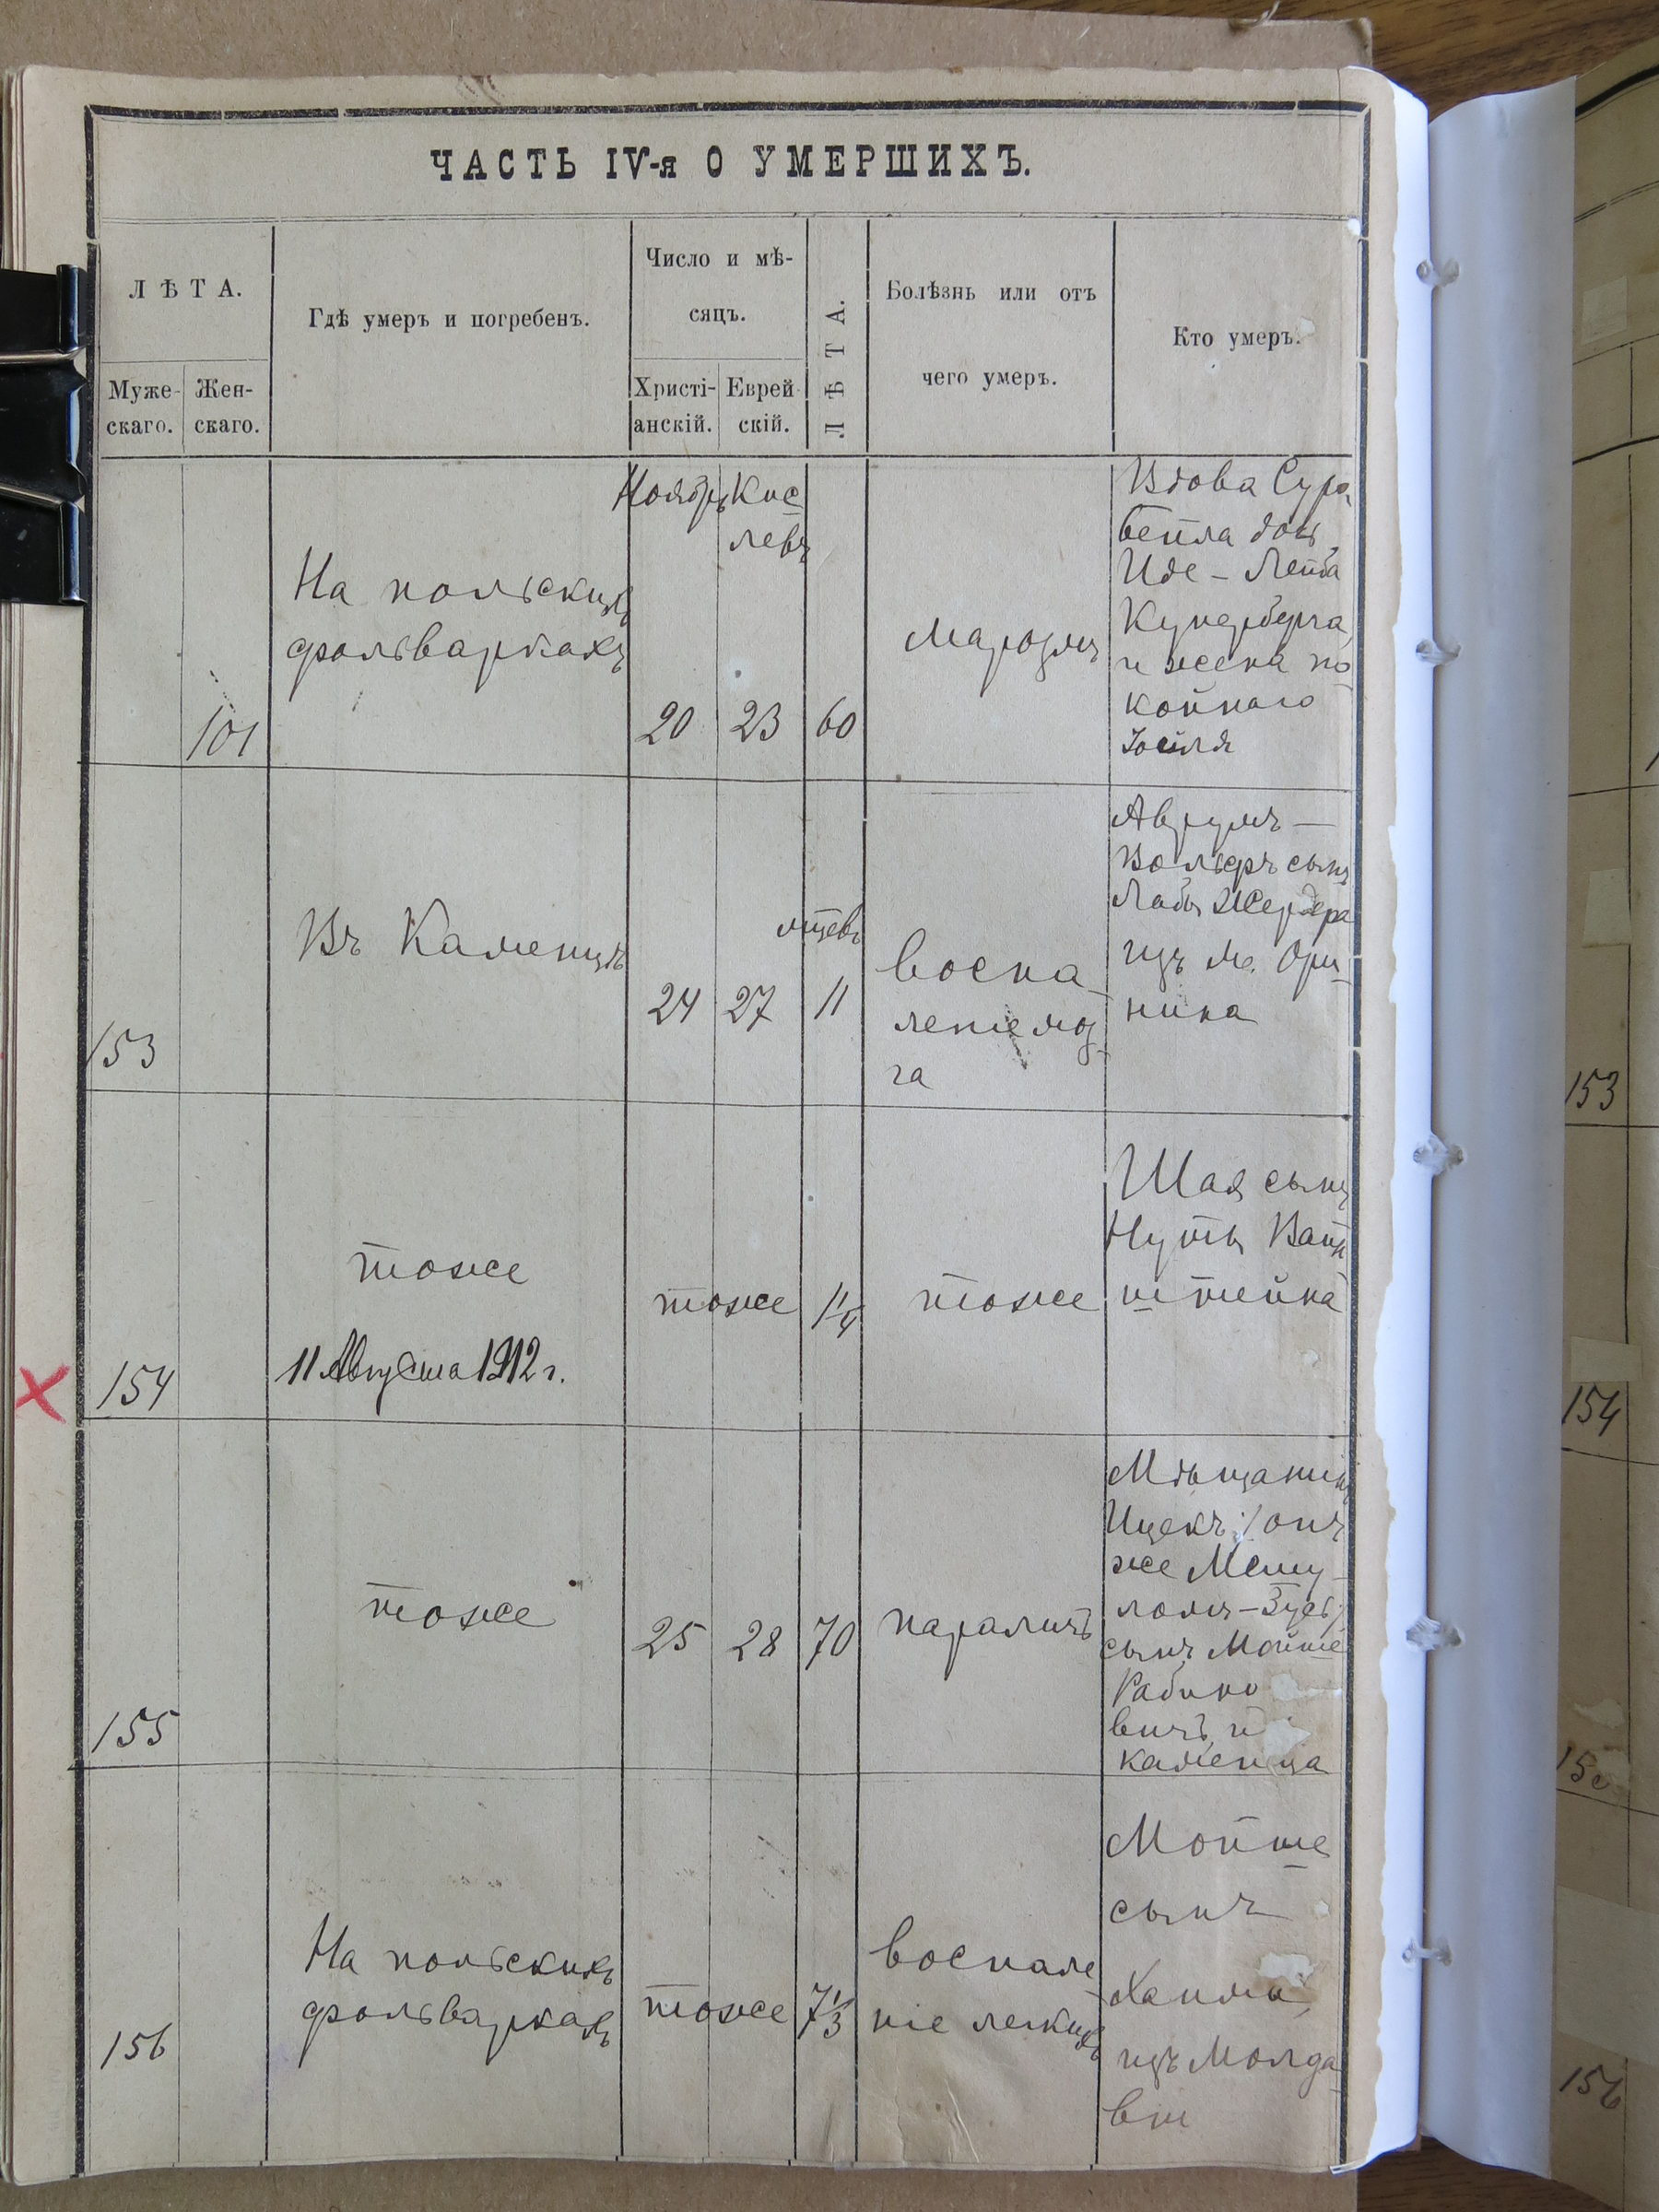 ЧАСТЬ IV-я О УМЕРШИХЪ.
ЛѢТА.
Муже-
скаго.
Жен-
скаго.
Гдѣ умеръ и погребенъ.
Число и мѣ-
сяцъ.
Христі-
анскій.
Еврей
скій.
ЛѢТА.
Болѣзнь или отъ
чего умеръ.
Кто умеръ.
Ноябрь
Кис
левъ
101
На польскихъ
фольваркахъ
20
23
60
Маразмъ
Вдова Сура
бейла дочь
Иде - Лейба
Купербергa
и жена по
койнаго
153
Въ Каменцѣ
24
27
мѣсяцевъ
11
воспа
леніе моз-
га
Аврумъ -
Вольфъ сынъ
изъ м. Ори
нина
154
тоже
11 Августа 1912 г.
тоже
1 1/4
тоже
Шая сынъ
Нуты Вайн
штейна
155
тоже
25
28
70
параличъ
Мѣщанинъ
Ицекъ /онъ
же Мешу
ломъ - Зусь/
сынъ Мойше
Рабино
вичъ и
каменца
156
На польскихъ
фольваркахъ
тоже
7 1/3
воспале
ніе легкихъ
Мойше
сынъ
Хаима
изъ Молда
віи
153
154
156